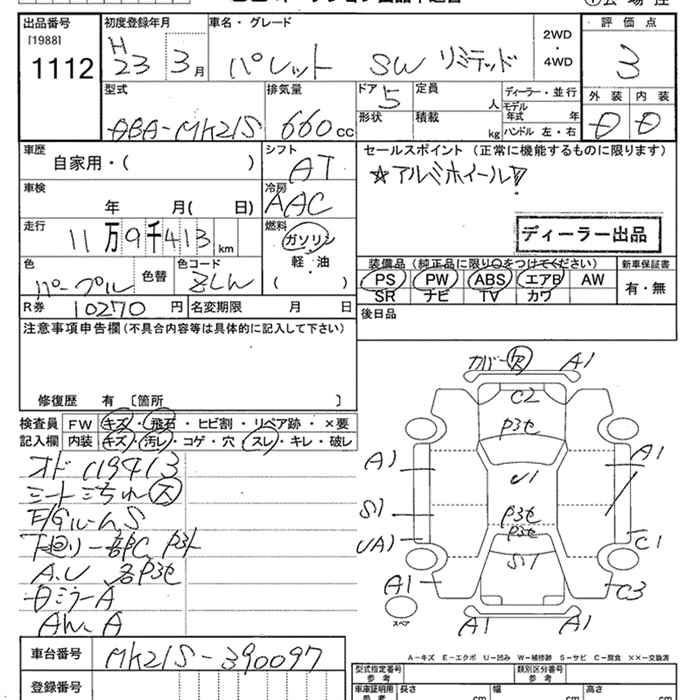 出品番号 初度登録年月 車名・グレード 2WD ・ 4WD 評価点
[1988] 1112 H23年3月 パレット SW リミテッド 3
型式 排気量 ドア 5 定員 人 ディーラー・並行 外装 内装
ABA-MK21S 660cc 形状 積載 kg モデル年式 年 ハンドル 左・右
車歴 自家用・( ) シフト AT セールスポイント (正常に機能するものに限ります)
車検 年 月( 日) 冷房 AAC ☆アルミホイール
走行 11万9千413km 燃料 ガソリン・軽・油 ( ) ディーラー出品
色 パープル 色替 色コード 装備品 (純正品に限り○をつけてください) 新車保証書
PS PW ABS エアB AW 有・無
SR ナビ TV カワ
R券 10270円 名変期限 月 日 後日品
注意事項申告欄 (不具合内容等は具体的に記入して下さい)
修復歴 有 〔箇所 〕
検査員 FW キズ・飛石・ヒビ割・リペア跡・×要
記入欄 内装 キズ・汚レ・コゲ・穴・スレ・キレ・破レ
オド119413
シート
下廻り一部C
A.U
ミラーA
A
カバー A1
C2
A1 A1
U1
S1
UA1 C1
S1
A1 C3
スペア A1 A1
A-キズ E-エクボ U-凹み W-補修跡 S-サビ C-腐食 ××-交換済
車台番号 MK21S-390097
登録番号
型式指定番号 参考 類別区分番号 参考
車庫証明用 参考 長さ cm 幅 cm 高さ cm